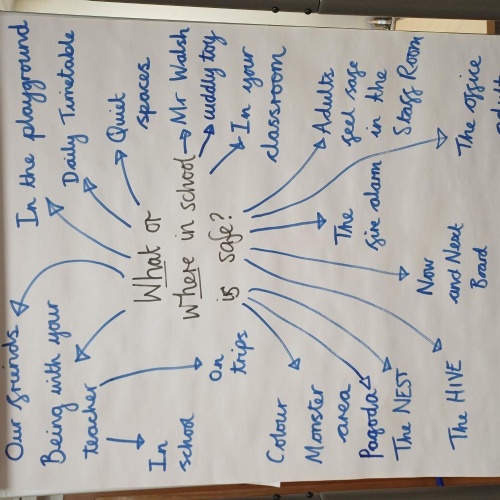 Our friends
In the playground
Being with your
teacher
Daily Timetable
Quiet
spaces
In
school
What or
Where in school
is safe?
Mr Walsh
cuddly toy
In your
classroom
On
trips
Colour
Monster
area
Pagoda
The NEST
The HIVE
Now
and Next
Board
The
fire alarm
Adults
feel safe
in the
Staff Room
The office